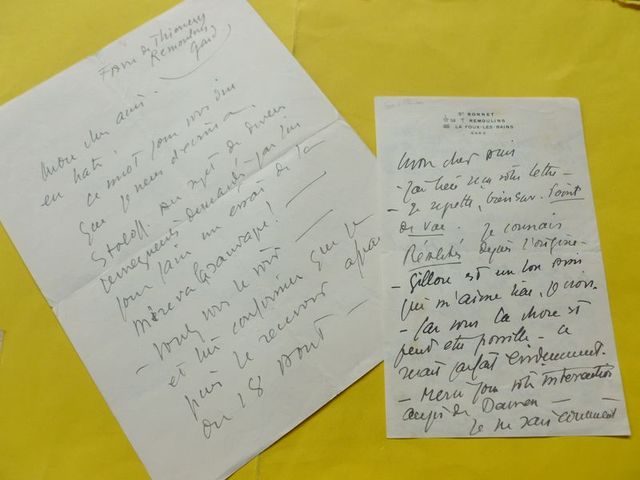 Remoulins
Gard
Mon cher ami.
en hâte.
ce mot pour vous dire
que je viens d'écrire à
au sujet de divers
renseignements demandés par lui
pour faire un essai de la
vous le voir
et lui confirmer que je
puis le recevoir
au 18 Août —
St BONNET
REMOULINS
LA FOUX-LES-BAINS
GARD
Mon cher ami
- J'ai bien reçu votre lettre -
- Je regrette, bien sûr. Point
de vue. Je connais
Réalités depuis l'origine -
- Gillou est un bon ami
qui m'aime bien, je crois.
- Par vous la chose est
peut être possible - ce
serait parfait évidemment.
- Merci pour votre intervention
auprès de
Je ne sais comment